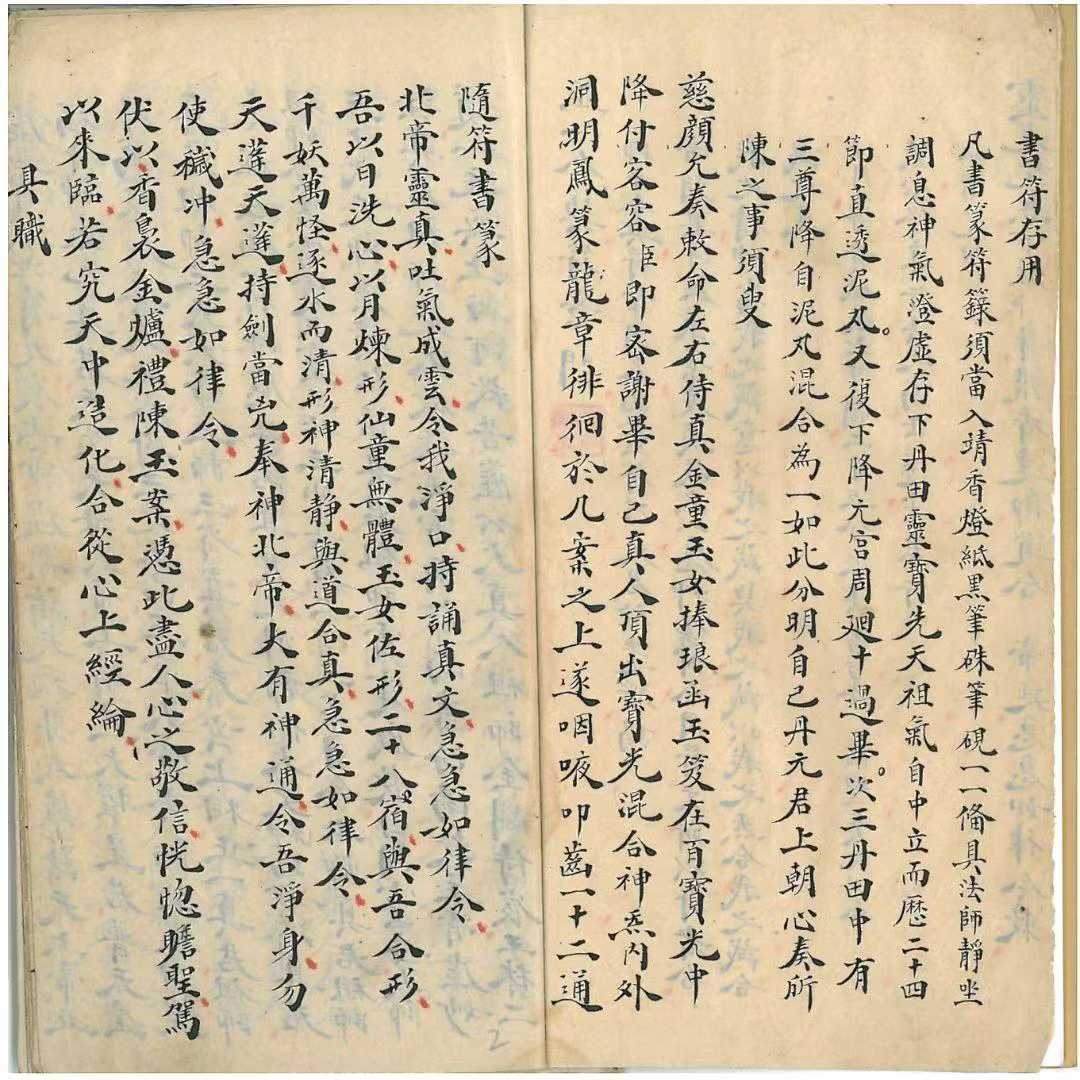 書符存用
凡書篆符籙須當入靖香燈紙黑筆硃筆硯一一俻具法師靜坐
調息神氣澄虛存下丹田靈寶先天祖氣自中立而歷二十四
節直透泥丸。又復下降元宮周廻十過畢。次三丹田中有
三尊降自泥丸混合為一如此分明自己丹元君上朝心奏所
陳之事須臾
慈顏允奏敕命左右侍真金童玉女捧琅函玉笈在百寶光中
降付客容臣即密謝畢自己真人頂出寶光混合神炁內外
洞明鳳篆龍章徘徊於几案之上遂咽唊叩齒一十二通
隨符書篆
北帝靈真吐氣成雲令我淨口持誦真文急急如律令
吾以日洗心以月煉形仙童無體玉女佐形二十八宿與吾合形
千妖萬怪逐水而清形神清静與道合真急急如律令
天蓬天蓬持劍當兇奉神北帝大有神通令吾淨身勿
使穢冲急急如律令
伏以香裊金爐禮陳玉案憑此盡人心之敬信恍惚瞻聖駕
以來臨若究天中造化合從心上經綸
具職
2